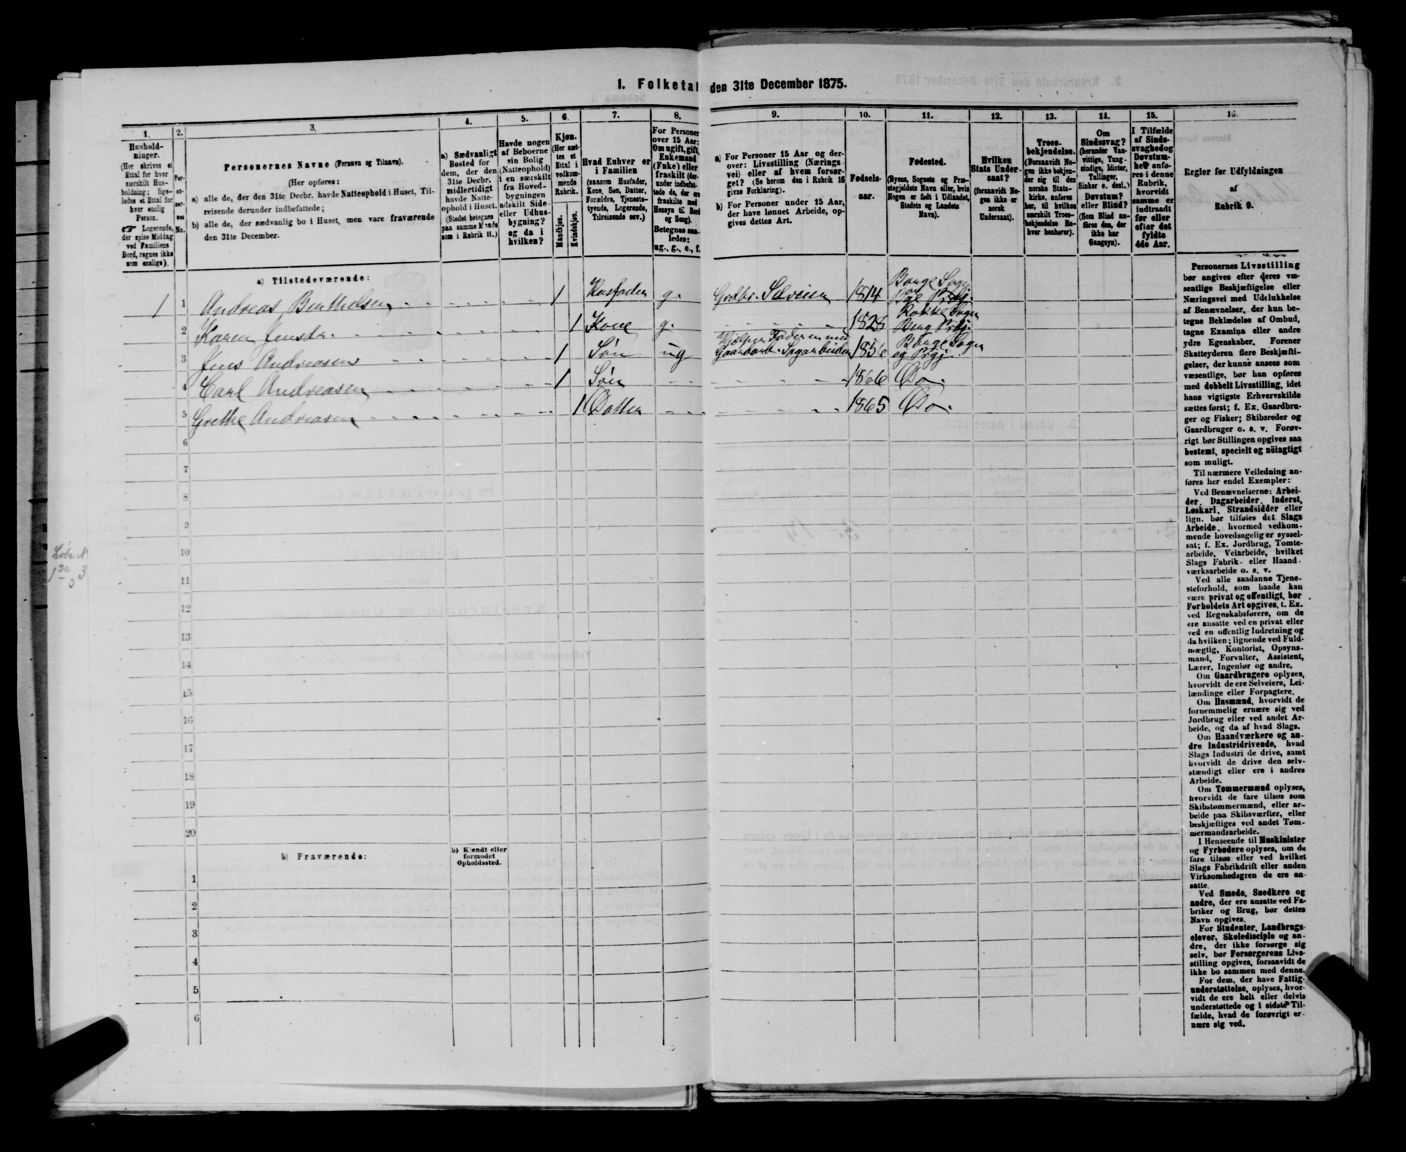 1. Folketal den 31te December 1875.
1.
Hushold-
ninger.
(Her skrives et
Ettal for hver
særskilt Hus-
holdning; lige-
ledes et Ettal for
hver enlig
Person.
☞ Logerende,
der spise Middag
ved Familiens
Bord, regnes ikke
som enslige).
2.
No.
3.
Personernes Navne (Fornavn og Tilnavn).
(Her opføres:
a) alle de, der den 31te Decbr. havde Natteophold i Huset, Til-
reisende derunder indbefattede;
b) alle de, der sædvanlig bo i Huset, men vare fraværende
den 31te December.
4.
a) Sædvanligt
Bosted for
dem, der den
31te Decbr.
midlertidigt
havde Natte-
ophold i Huset.
(Stedet betegnes
paa samme Maade
som i Rubrik 11.)
5.
Havde nogen
af Beboerne
sin Bolig
(Natteophold)
i en særskilt
fra Hoved-
bygningen
afskilt Side-
eller Udhus-
bygning?
og da i
hvilken?
6.
Kjøn.
(Her sæt-
tes et
Ettal i
vedkom-
mende
Rubrik.
Mandkjøn.
Kvindekjøn.
7.
Hvad Enhver er
i Familien
(saasom Husfader,
Kone, Søn, Datter,
Forældre, Tjeneste-
tyende, Logerende,
Tilreisende osv.)
8.
For Personer
over 15 Aar:
Om ugift, gift,
Enkemand
(Enke) eller
fraskilt (der-
under indbefat-
tede de, der ere
fraskilte med
Hensyn til Bord
og Seng).
Betegnes saa-
ledes:
ug., g., e., f.
9.
a) For Personer 15 Aar og der-
over: Livsstilling (Nærings-
vei) eller af hvem forsør-
get? (Se herom den i Rubrik 16
givne Forklaring).
b) For Personer under 15 Aar,
der have lønnet Arbeide, op-
gives dettes Art.
10.
Fødsels-
aar.
11.
Fødested.
(Byens, Sognets og Præ-
stegjeldets Navn eller, hvis
Nogen er født i Udlandet,
Stedets og Landets
Navn).
12.
Hvilken
Stats Under-
saat?
(forsaavidt No-
gen ikke er
norsk
Undersaat).
13.
Troes-
bekjendelse.
(Forsaavidt No-
gen ikke bekjen-
der sig til den
norske Stats-
kirke, anføres
her, til hvilken
særskilt Troes-
bekjendelse En-
hver henhører).
14.
Om
Sindssvag?
(herunder Van-
vittige, Tung-
sindige, Idioter,
Tullinger,
Sinker o. desl.)
Døvstum?
eller Blind?
(Som Blind an-
føres den, der
ikke har
Gangsyn).
15.
I Tilfælde
af Sinds-
svaghed og
Døvstum-
hed anfø-
res i denne
Rubrik,
hvorvidt
samme er
indtraadt
før eller
efter det
fyldte
4de Aar.
16.
Regler for Udfyldningen
af
Rubrik 9.
a) Tilstedeværende:
1 1 Andreas Bertholsen 1 Husfader g. Grdbr. Selveier 1814
2 Karen Jensdr. 1 Kone g. 1828
3 Jens Andreasen 1 Søn ug
4 Carl Andreasen 1 Søn 1866 Do.
5 Grethe Andreasen 1 Datter 1865 Do.
6
7
8
9
10
11
12
13
14
15
16
17
18
19
20
b) Fraværende:
b) Kjendt eller
formodet
Opholdssted.
1
2
3
4
5
6
Personernes Livsstilling
bør angives efter deres væ-
sentlige Beskjæftigelse eller
Næringsvei med Udelukkelse
af Benævnelser, der kun be-
tegne Beklædelse af Ombud,
tagne Examina eller andre
ydre Egenskaber. Forener
Skatteyderen flere Beskjæfti-
gelser, der kunne ansees som
væsentlige, bør han opføres
med dobbelt Livsstilling, idet
hans vigtigste Erhvervskilde
sættes først; f. Ex. Gaardbru-
ger og Fisker; Skibsreder og
Gaardbruger o. s. v. Forøv-
rigt bør Stillingen opgives saa
bestemt, specielt og nøiagtigt
som muligt.
Til nærmere Veiledning an-
føres her endel Exempler:
Ved Benævnelserne: Arbei-
der, Dagarbeider, Inderst,
Løskarl, Strandsidder eller
lign. bør tilføies det Slags
Arbeide, hvormed vedkom-
mende hovedsagelig er syssel-
sat; f. Ex. Jordbrug, Tomte-
arbeide, Veiarbeide, hvilket
Slags Fabrik- eller Haand-
værksarbeide o. s. v.
Ved alle saadanne Tjene-
steforhold, som baade kan
være privat og offentligt, bør
Forholdets Art opgives, t. Ex.
ved Regnskabsførere, om de
ere ansatte ved en privat eller
ved en offentlig Indretning og
da hvilken; lignende ved Fuld-
mægtig, Kontorist, Opsyns-
mand, Forvalter, Assistent,
Lærer, Ingeniør og andre.
Om Gaardbrugere oplyses,
hvorvidt de ere Selveiere, Lei-
lændinge eller Forpagtere.
Om Husmænd, hvorvidt de
fornemmelig ernære sig ved
Jordbrug eller ved andet Ar-
beide, og da af hvad Slags.
Om Haandværkere og an-
dre Industridrivende, hvad
Slags Industri de drive, samt
hvorvidt de drive den selv-
stændigt eller ere i andres
Arbeide.
Om Tømmermænd oplyses,
hvorvidt de fare tilsøs som
Skibstømmermænd, eller ar-
beide paa Skibsværfter, eller
beskjæftiges ved andet Tøm-
mermandsarbeide.
I Henseende til Maskinister
og Fyrbødere oplyses, om de
fare tilsøs eller ved hvilket
Slags Fabrikdrift eller anden
Virksomhedsgren de ere an-
satte.
Ved Smede, Snedkere og
andre, der ere ansatte ved Fa-
briker og Brug, bør dettes
Navn opgives.
For Studenter, Landbrugs-
elever, Skoledisciple og an-
dre, der ikke forsørge sig
selv, bør Forsørgerens Livs-
stilling opgives, forsaavidt de
ikke bo sammen med denne.
For dem, der have Fattig-
understøttelse, oplyses, hvor-
vidt de ere helt eller delvis
understøttede og i sidste Til-
fælde, hvad de forøvrigt er-
nære sig ved.